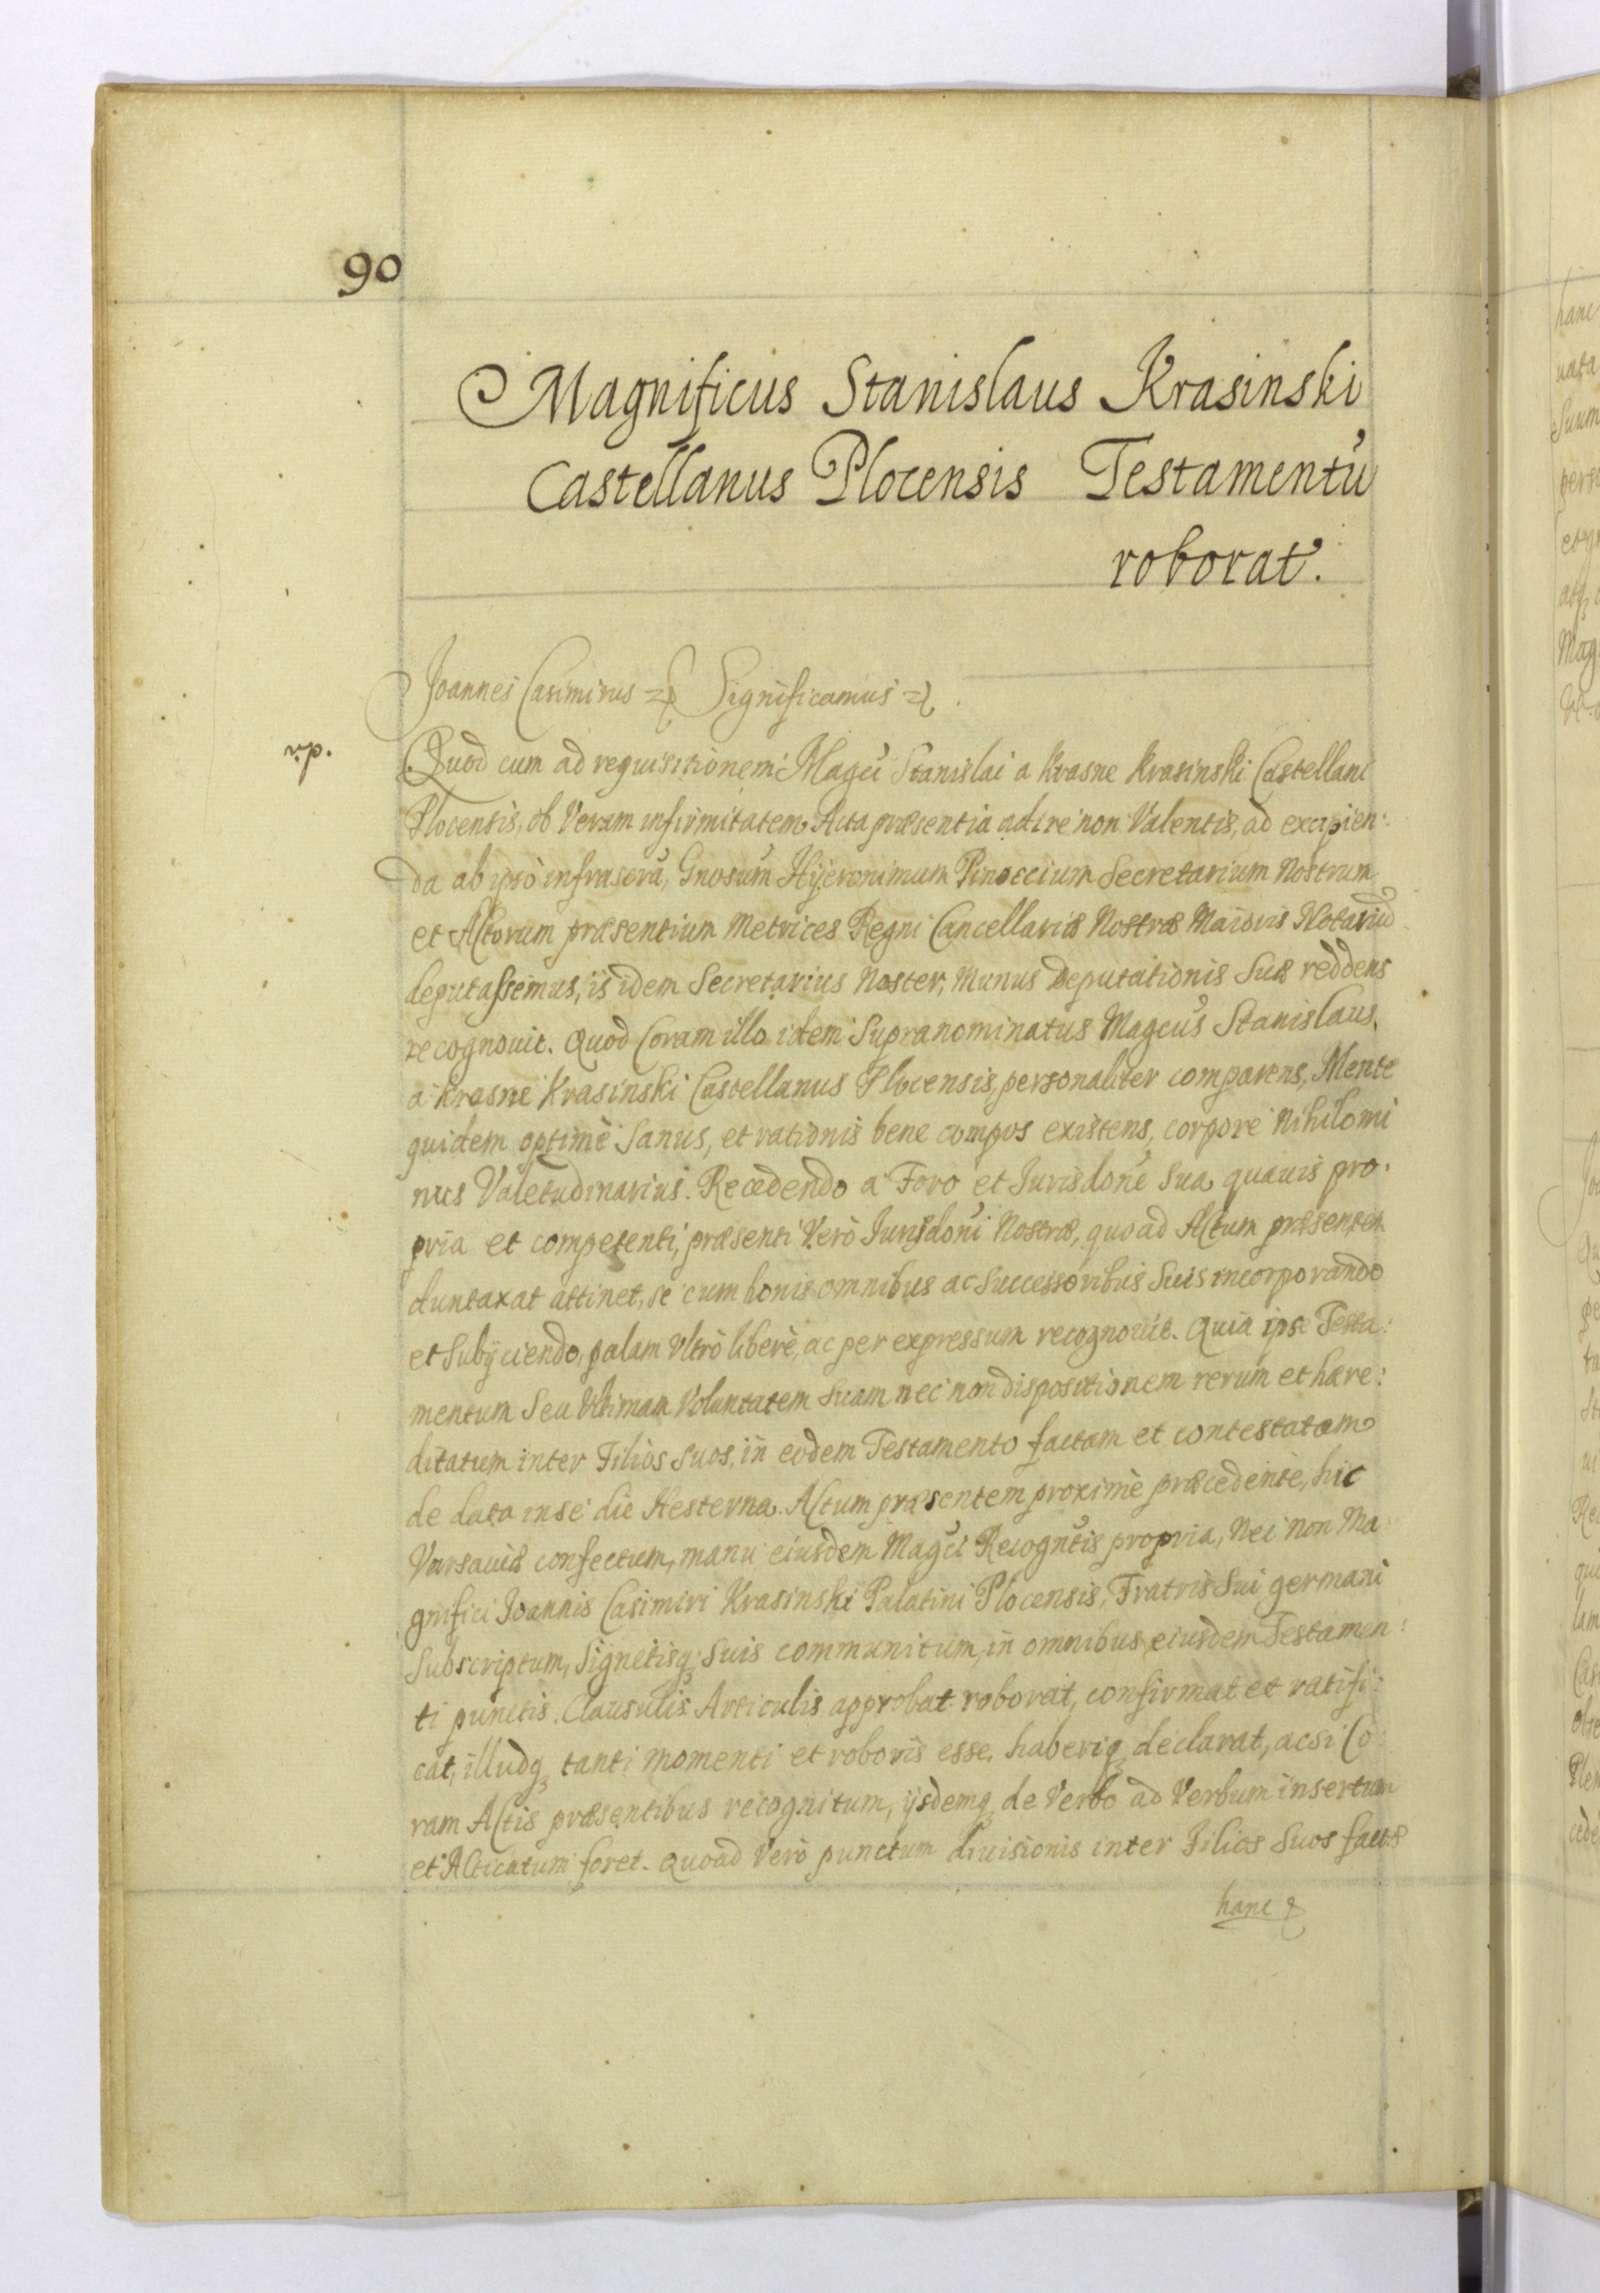 90
Magnificus Stanislaus Krasinski
Castellanus Plocensis Testamentũ
roborat.
Joannes Casimirus Significamus
rp.
Quod cum ad requisitionem Magci Stanislai a Krasne Krasinski Castellani
Plocensis, ob Veram infirmitatem Acta præsentia adire non Valentis, ad excipien:
da ab ipso infrascra, Gnosum Hyeronimum Pinoccium Secretarium Nostrum
et Actorum præsentium Metrices Regni Cancellariæ Nostræ Maioris Notariũ
deputassemus, is idem Secretarius Noster, Munus Deputationis Suæ reddens
recognouit. Quod Coram illo idem Supranominatus Magcus Stanislaus
a Krasne Krasinski Castellanus Plocensis, personaliter comparens, Mente
quidem optimè Sanus, et rationis bene compos existens, corpore Nihilomi
nus Valetudinarius. Recedendo a Foro et Jurisdone Sua quauis pro:
pria et competenti, præsenti Verò Jurisdoni Nostræ, quo ad Actum præsentem
duntaxat attinet, se cum bonis omnibus ac Successoribus Suis incorporando
et Subijciendo, palam Vltrò liberè, ac per expressum recognouit. Quia ipse Testa:
mentum Seu Vltimam Voluntatem Suam nec non dispositionem rerum et hære:
ditatum inter Filios Suos, in eodem Testamento factam et contestatam
de data in se die Hesterna Actum præsentem proximè præcedente, hic
Varsauiæ confectum, manu eiusdem Magci Recogntis propria, Nec Non Ma
gnifici Joannis Casimiri Krasinski Palatini Plocensis, Fratris Sui germani
Subscriptum, Signetisq; Suis communitum, in omnibus eiusdem Testamen:
ti punctis. Clausulis Articulis approbat roborat, confirmat et ratifi:
cat, illudq; tanti momenti et roboris esse, haberiq; declarat, acsi Co
ram Actis præsentibus recognitum, ijsdemq; de Verbo ad Verbum insertum
et Acticatum foret. Quoad Verò punctum diuisionis inter Filios Suos factæ
hanc